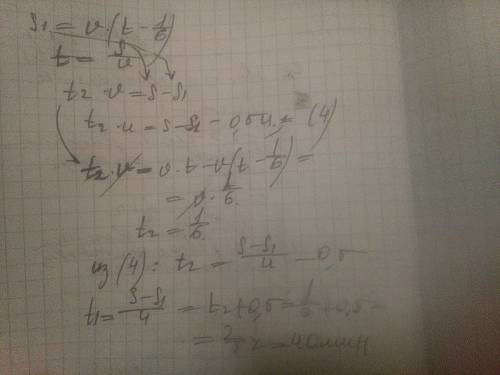 S₁ = v·(t − 1/6)
t = S/v
t₂·v = S − S₁
t₂·u = S − S₁ − 0,5u (4)
t₂·v = v·t − v(t − 1/6) =
= v·1/6.
t₂ = 1/6.
из (4): t₂ = (S − S₁)/u − 0,5
t₁ = (S − S₁)/u = t₂ + 0,5 = 1/6 + 0,5 =
= 2/3 ч = 40 мин